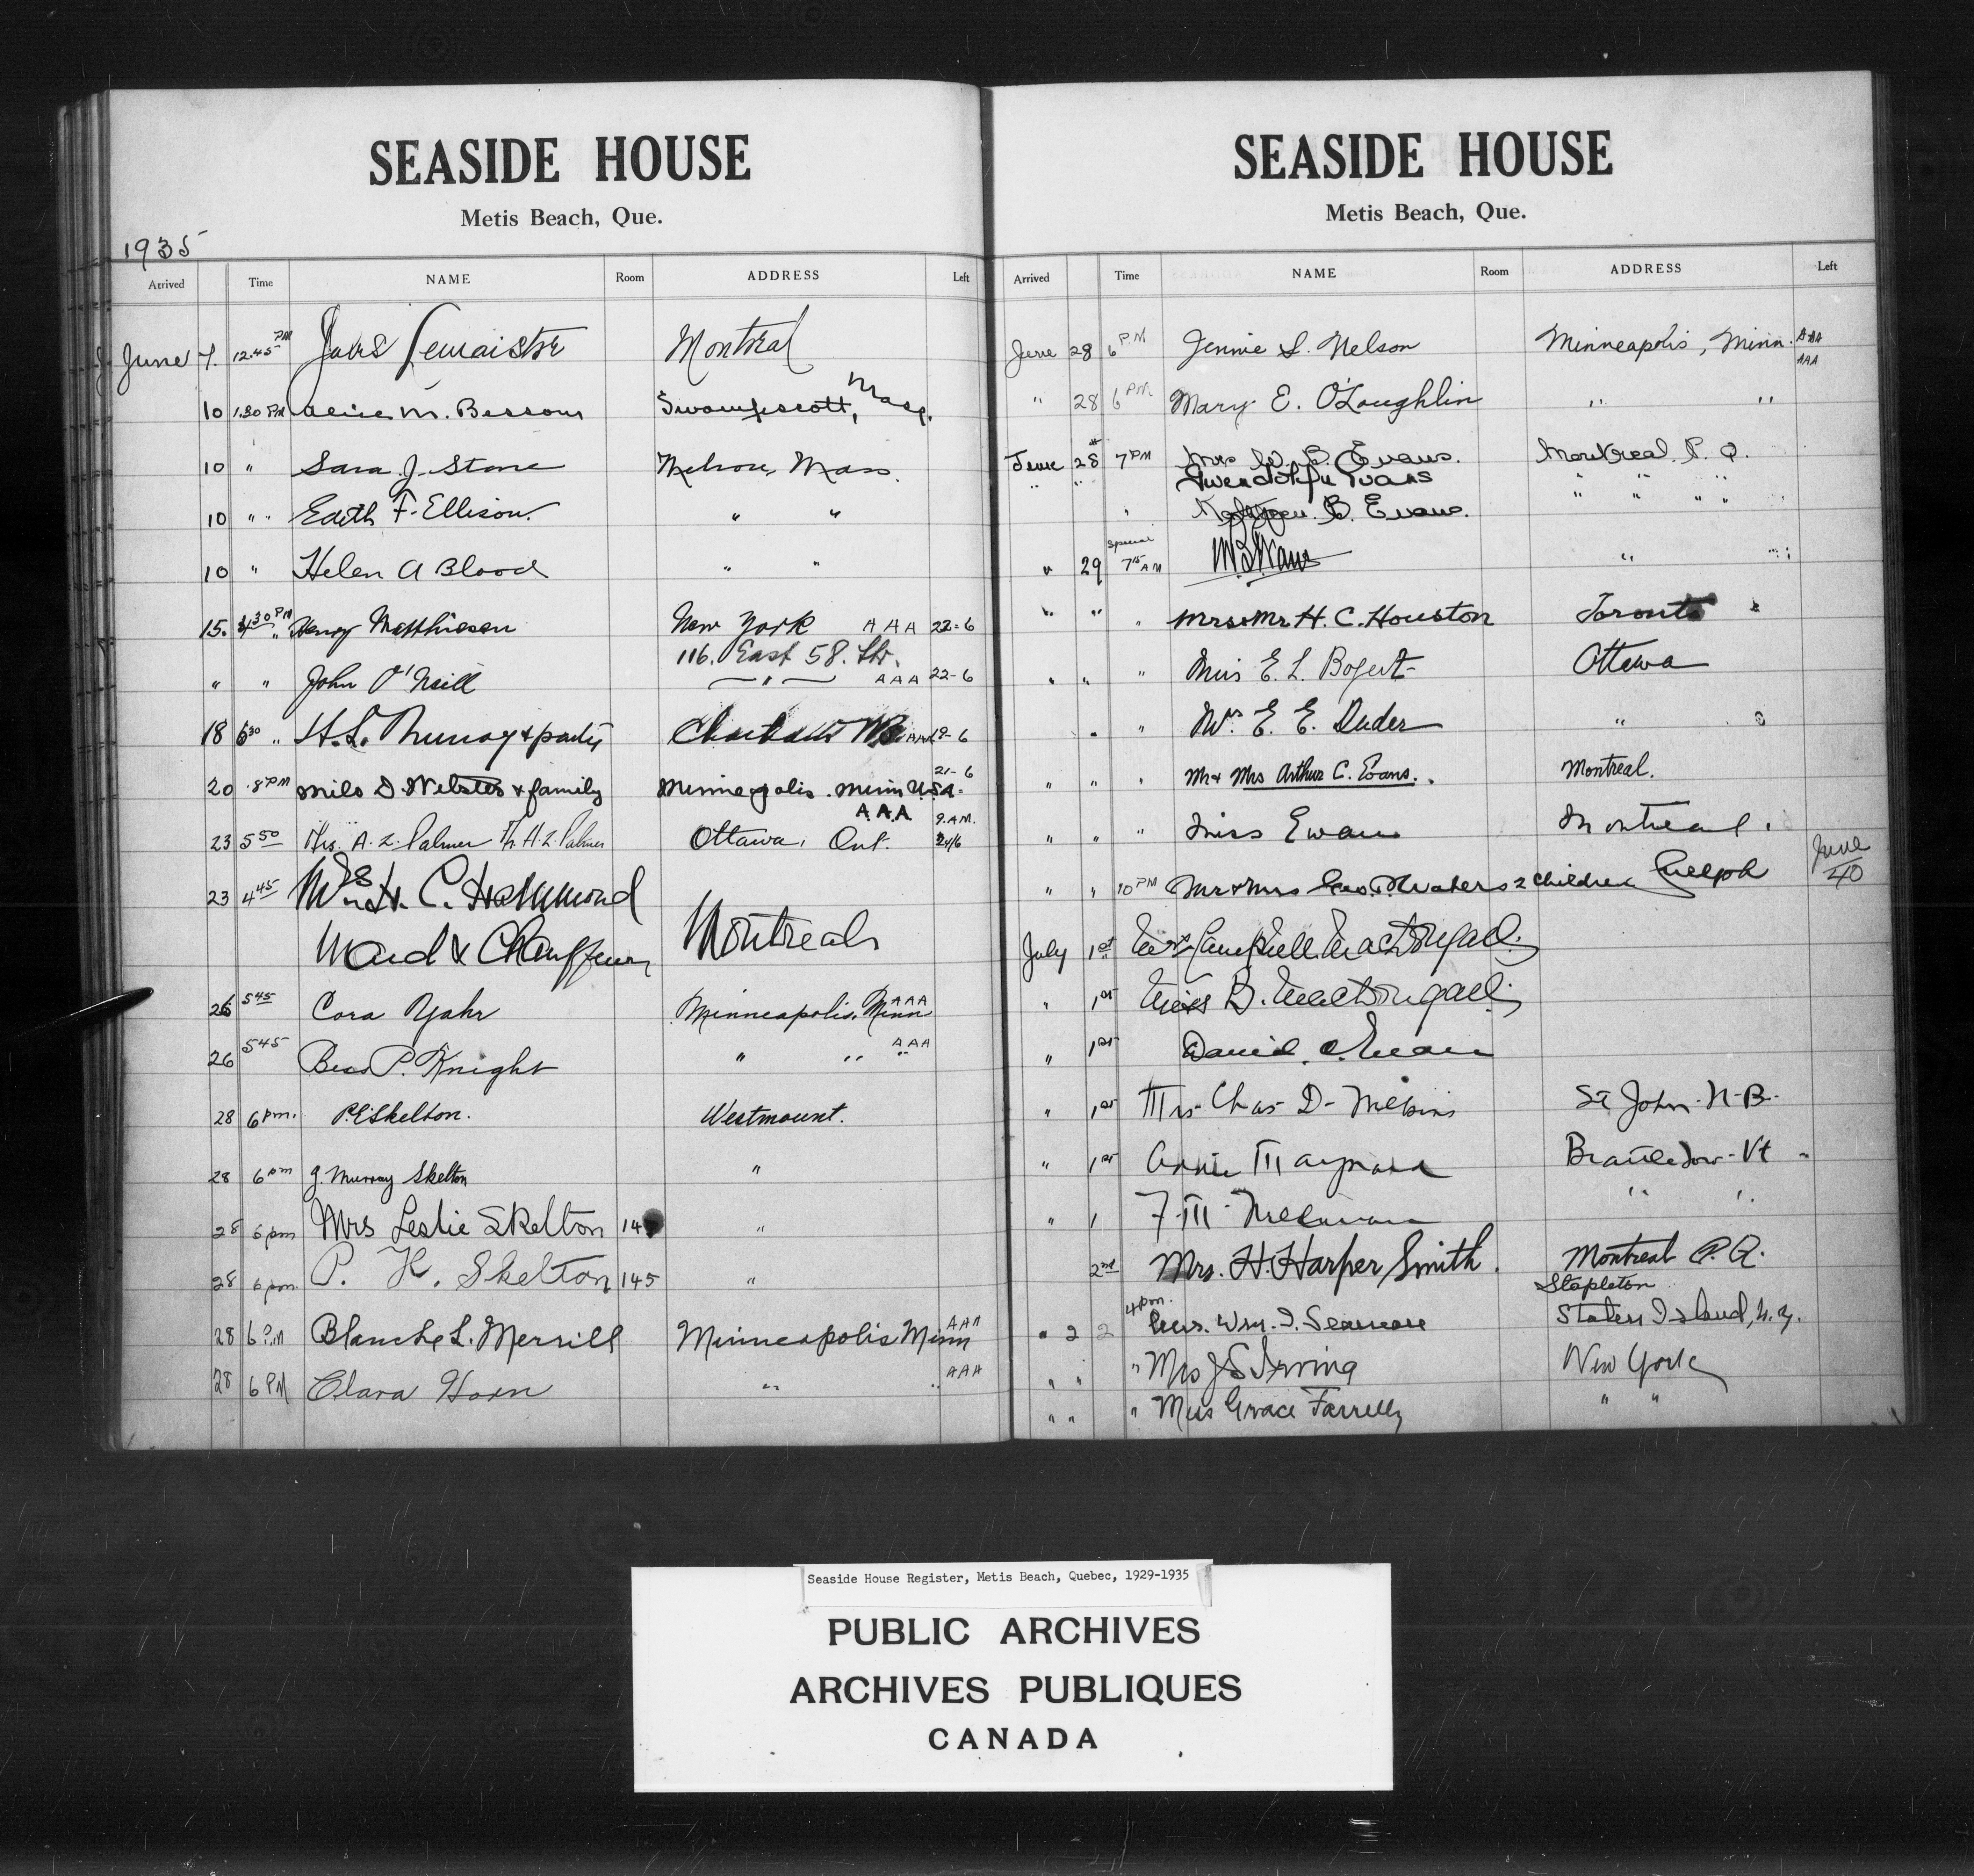 SEASIDE HOUSE
Metis Beach, Que.
1935
Arrived Time NAME Room ADDRESS Left
June 7. 12.45 PM Lemaistre Montreal
10 1.30 PM Alice M. Bessom Swampscott, Mass.
10 " Sara J. Stone Melrose, Mass.
10 " Edith F. Ellison. " "
10 " Helen A Blood " "
15. 4 30 PM Henry Matthiesen New York AAA 22-6
116. East 58. Str.
" " John O'Neill " AAA 22-6
18 6 30 " H. L. & party AAA 19-6
20 8 PM Milo D. Webster & family Minneapolis. Minn U.S.A. 21-6
AAA 9.A.M.
23 5 50 Mrs. A. Z. Palmer A. Z. Palmer Ottawa, Ont. 24/6
23 4 45 H. C. Hammond
Maid & Chauffeur Montreal
26 5 45 Cora Yahr Minneapolis, Minn AAA
26 5 45 P. Knight " " " AAA
28 6 pm. P.E. Skelton. Westmount.
28 6 pm J. Murray Skelton "
28 6 pm Mrs Leslie Skelton 14 "
28 6 pm. P. K. Skelton 145 "
28 6 P.M Blanche L. Merrill Minneapolis Minn AAA
28 6 PM Clara Horn " " AAA
SEASIDE HOUSE
Metis Beach, Que.
Arrived Time NAME Room ADDRESS Left
June 28 6 PM Jennie S. Nelson Minneapolis, Minn. AAA
AAA
" 28 6 PM Mary E. O'Loughlin " "
June 28 7 PM Mrs W. B. Evans. Montreal P. Q.
" " Gwendolyn Evans " " " "
" B. Evans.
Special
" 29 7 15 AM " "
" " " Mrs & Mr H. C. Houston Toronto
" " " Miss E. L. Bogert Ottawa
" " Mrs. E. E. Duder "
" " " Mr & Mrs Arthur C. Evans. Montreal.
" " " Miss Evans Montreal.
" " 10 PM Mr & Mrs Geo. Waters 2 children Guelph June 40
July 1st Campbell MacDougall
" 1st Miss B. MacDougall
" 1st
" 1st Mrs Chas D. St John. N-B-
" 1st Annie Maynard Vt
" 1 F. M. " "
2nd Mrs. H. Harper Smith. Montreal P. Q.
Stapleton
4 pm.
" 2 2 Mrs. Wm. I. Staten Island, N.Y.
" " " Mrs J S Irving New York
" " " Miss Grace Farrelly " "
Seaside House Register, Metis Beach, Quebec, 1929-1935
PUBLIC ARCHIVES
ARCHIVES PUBLIQUES
CANADA